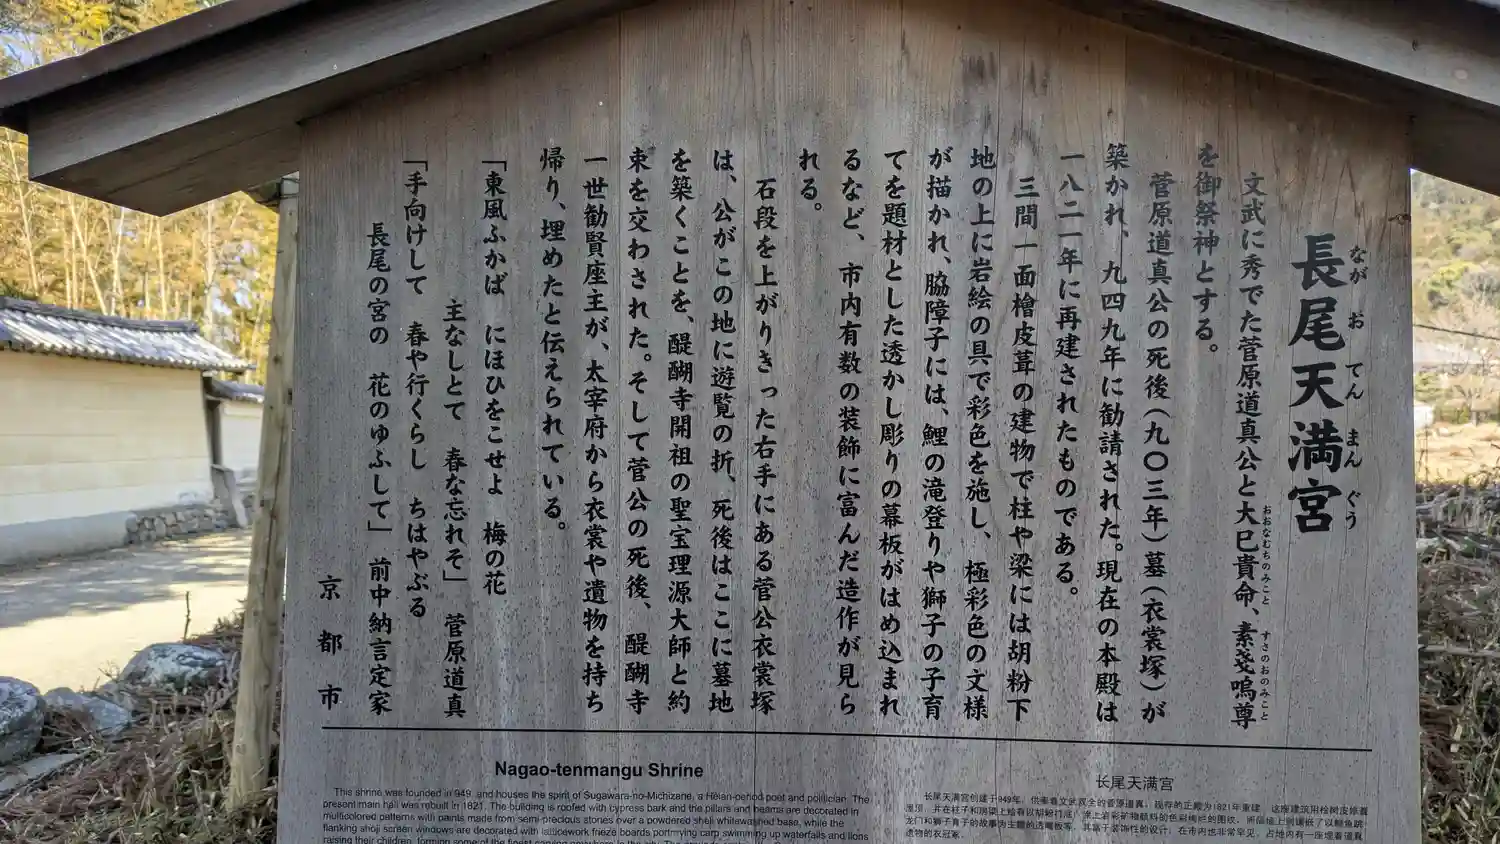 長尾天満宮
なが お てん まん ぐう
文武に秀でた菅原道真公と大巳貴命、素戔嗚尊
おおなむちのみこと すさのおのみこと
を御祭神とする。
菅原道真公の死後(九〇三年)墓(衣裳塚)が
築かれ、九四九年に勧請された。現在の本殿は
一八二一年に再建されたものである。
三間一面檜皮葺の建物で柱や梁には胡粉下
地の上に岩絵の具で彩色を施し、極彩色の文様
が描かれ、脇障子には、鯉の滝登りや獅子の子育
てを題材とした透かし彫りの幕板がはめ込まれ
るなど、市内有数の装飾に富んだ造作が見ら
れる。
石段を上がりきった右手にある菅公衣裳塚
は、公がこの地に遊覧の折、死後はここに墓地
を築くことを、醍醐寺開祖の聖宝理源大師と約
束を交わされた。そして菅公の死後、醍醐寺
一世勧賢座主が、太宰府から衣裳や遺物を持ち
帰り、埋めたと伝えられている。
「東風ふかば にほひをこせよ 梅の花
主なしとて 春な忘れそ」 菅原道真
「手向けして 春や行くらし ちはやぶる
長尾の宮の 花のゆふして」 前中納言定家
京都市
Nagao-tenmangu Shrine
This shrine was founded in 949, and houses the spirit of Sugawara-no-Michizane, a Heian-period poet and politician. The
present main hall was rebuilt in 1821. The building is roofed with cypress bark and the pillars and beams are decorated in
multicolored patterns with paints made from semi-precious stones over a powdered shell whitewashed base, while the
flanking shoji screen windows are decorated with latticework frieze boards portraying carp swimming up waterfalls and lions
raising their children, forming some of the finest carving anywhere in the city.
长尾天满宫
长尾天满宫创建于949年，供奉着文武双全的菅原道真。现存的正殿为1821年重建。